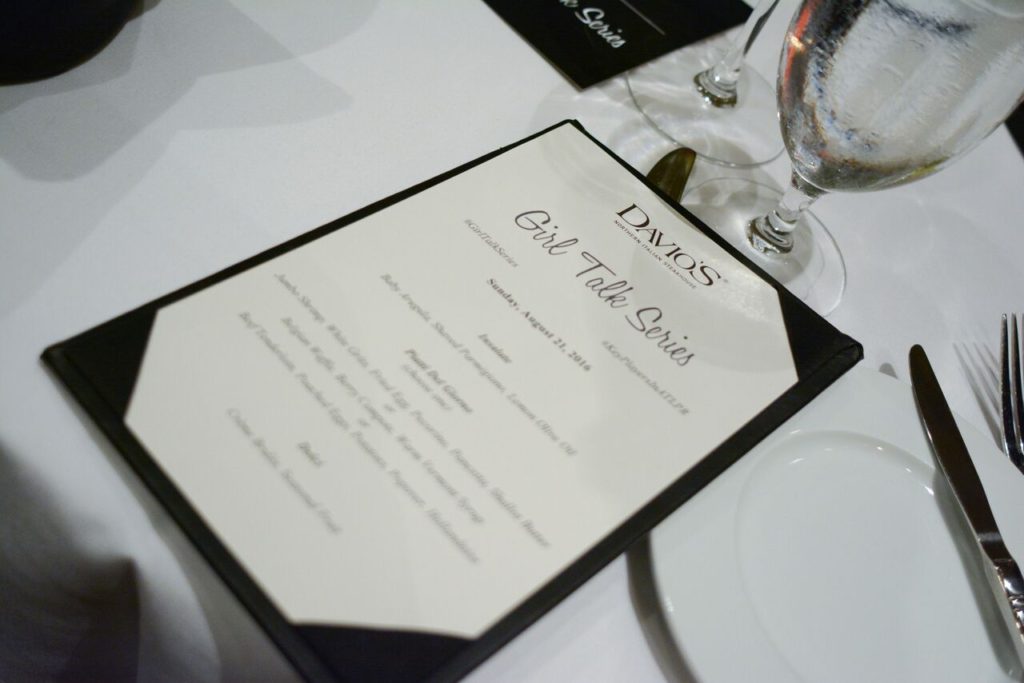 k Series
DAVIO'S
NORTHERN ITALIAN STEAKHOUSE
Girl Talk Series
#GirlTalkSeries
Sunday, August 21, 2016
Insalate
Baby Arugula, Shaved Parmigiano, Lemon Olive Oil
Piatti Del Giorno
(choose one)
Jumbo Shrimp, White Grits, Fried Egg, Pecorino, Pancetta, Shellfish Butter
or
Belgian Waffle, Berry Compote, Warm Vermont Syrup
or
Beef Tenderloin, Poached Eggs, Potatoes, Peppers, Hollandaise
Dolci
Crème Brûlée, Seasonal Fruit